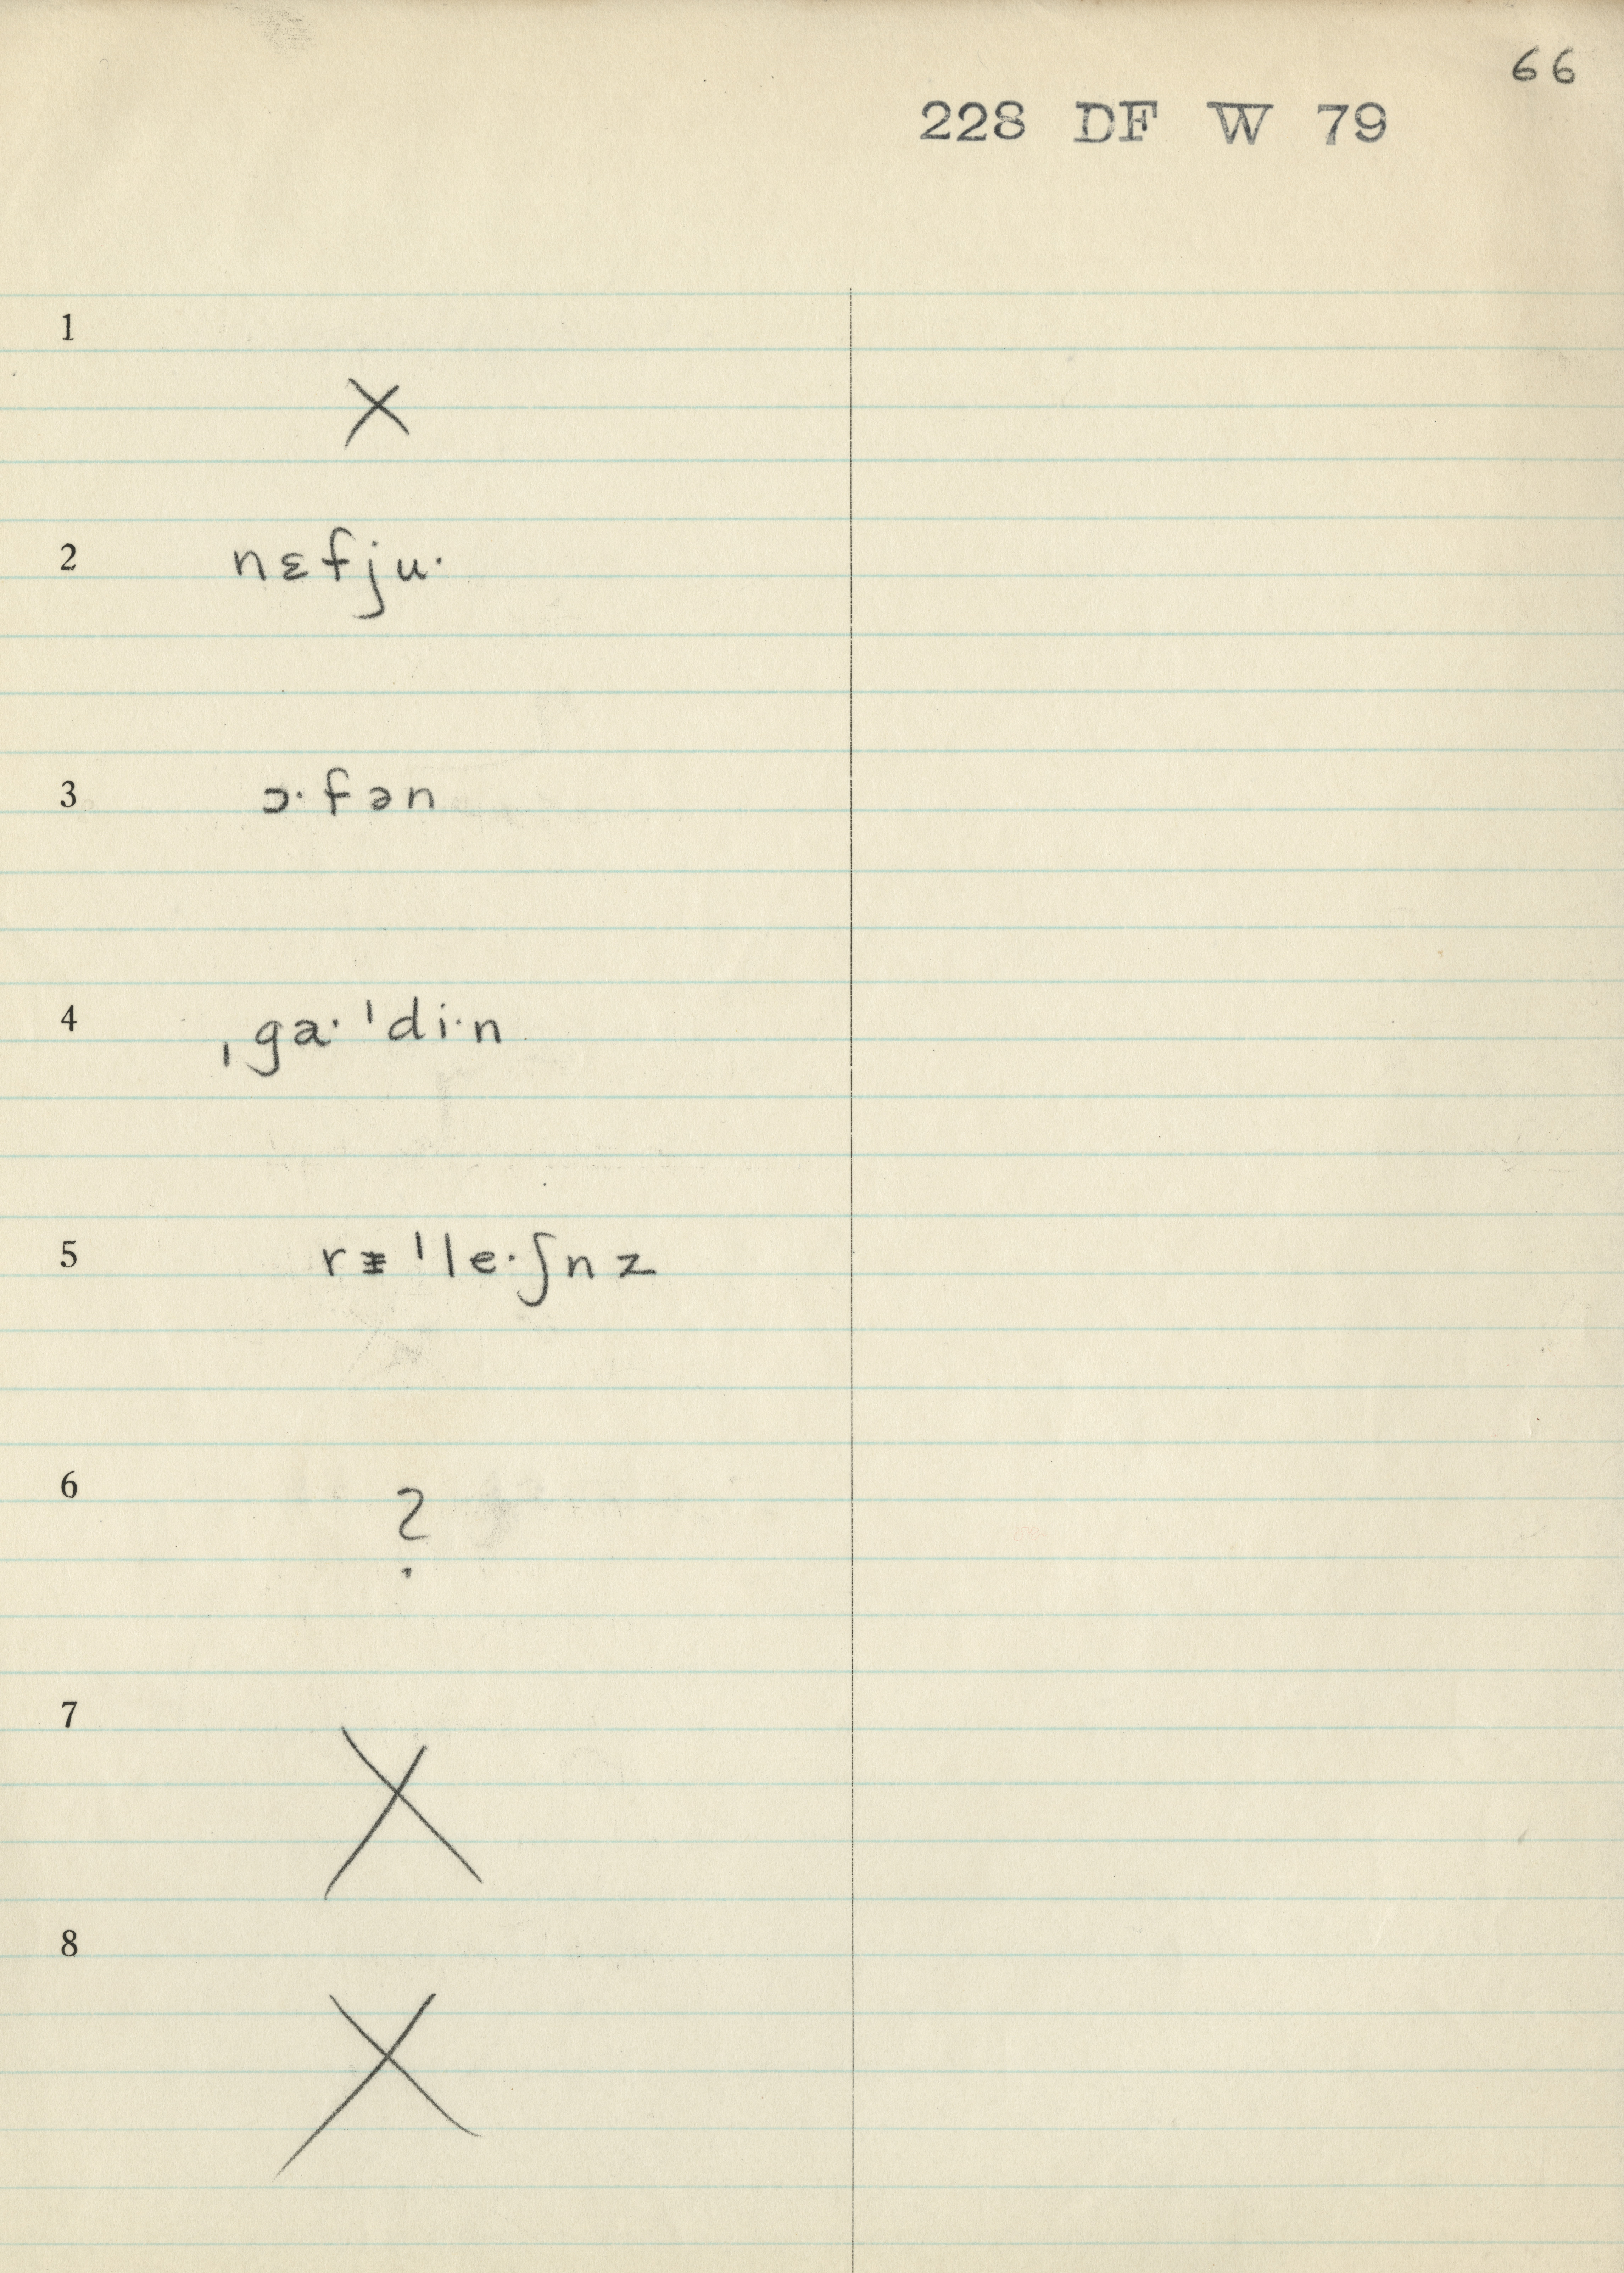 66
228 DF W 79
1
X
2 nɛfju·
3 ɔ·fən
4 ˌga·ˈdi·n
5 rᵻˈle·ʃnz
6
?
7
X
8
X